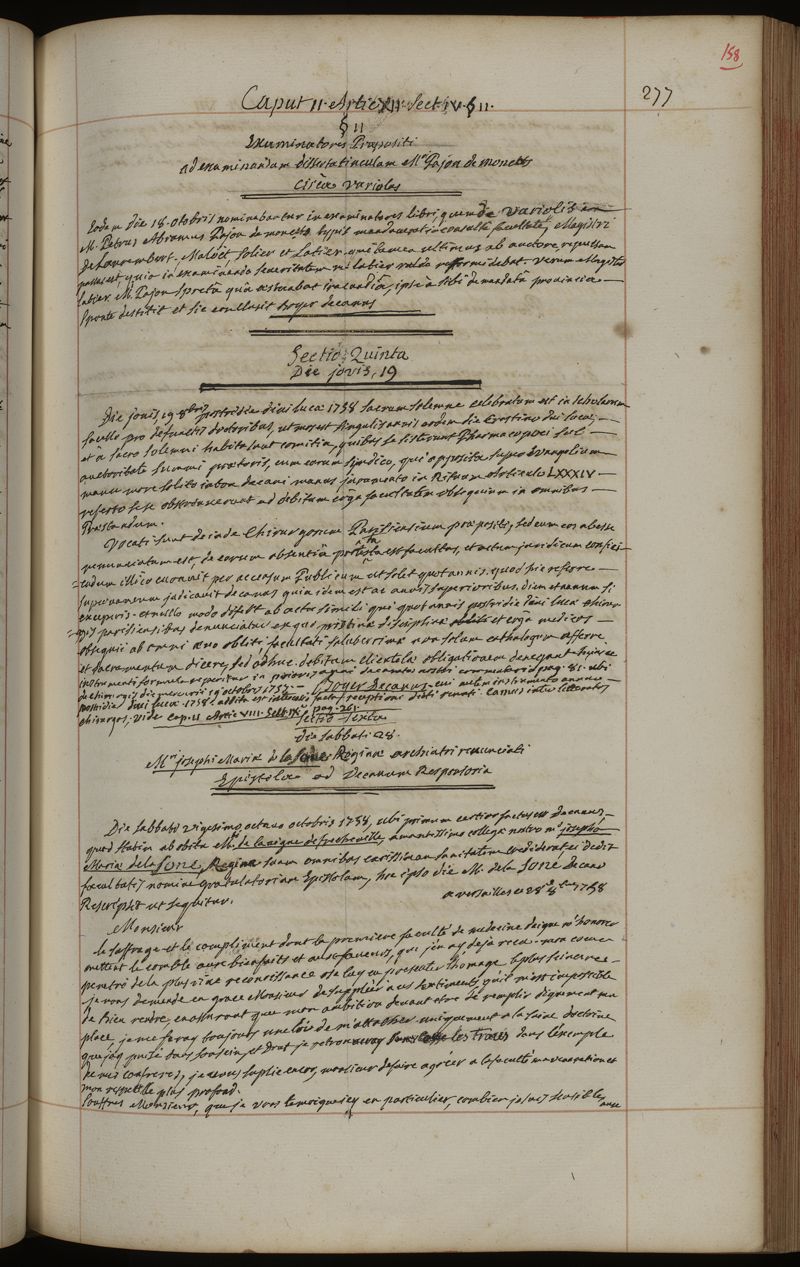 158
277
Caput II. Artic XII. Sect. IV. § II.
§ II
Examinatores Præpositi
ad examinandum dissertatiunculam M.ri Pajon de monets
circa variolas
Eodem die 18. octobris nominabantur in examinatores libri quem de variolis
M. Petrus Abramus Pajon de monets typis mandaverat inconsulta facultate, Magistri
De Lauremburt. Maloët, solier et Latier. qui tamen ultimus ab auctore, repulsam
passus est, quia in examinando severitatem m.ri latier valde reformidabat. verum Magister
latier M. Pajon spretâ quâ æstuabat iracundiâ, ipse à sibi demandatâ provinciâ
sponte destitit et sic conclusit Boyer decanus
Sectio Quinta
Die jovis, 19
Die jovis 19 8bris postridie divi lucæ 1758 sacrum solemne celebratum est in scholarum
sacello pro defunctis doctoribus, ut mos est singulis annis eodem die crastino divi lucæ,
et à sacro solemni habita sunt comitia, quibus se stiterunt Pharmacopœi sub
auctoritate summi prætoris, cum eorum syndico, qui appositâ super Evangelium
manu more solito in decani manus juramento in Rituum Articulo LXXXIV
referto sese obstrinxerunt ad debitum ergà facultatem obsequium in omnibus
Præstandum.
Vocati sunt deinde Chirurgorum Parisiensium præpositi, sed eum eos abesse
renunciatum est, de eorum absentiâ protestata est facultas, et actum juridicum confici-
=endum illico curavit per accersum Publicum ut solet quotannis. quod hic referre
supervacuum judicavit decanus quia idem est ac annis superioribus. diem et annum si
exceperis. et nullo modo differt ab actu simili qui quotannis postridie divi lucæ chirur-
=gis parisiensibus denunciatur ex quo pristinæ disciplinæ et ergà medicos
obsequii ab omni ævo obliti, facultati saluberrimæ non solum cathalogum offerre
et sacramentum dicere, sed adhuc debitum clientelæ obligationem denegant hujusce
instrumenti formula reperitur in priori anni decanatus nostri commentario pag. 81. ubi
de chirurgis die mercurii 19 octobris 1757. — Boyer Decanus. cui autem instrumento annuo
postridie divi lucæ 1758 addita est
chirurgos, vide cap. II Artic VIII. Sect. IX pag. 261.
Sectio sexta
Die Sabbati 28.
M.ri josephi Mariæ de la Sône Reginæ archiatri renunciati
Epistola ad Decanum Responsoria
Die sabbati vigesimo octavo octobris 1758, ubi primum certior factus est Decanus,
quod statim ab obitu M.ri de la vigne de frecheville, amantissimo collegæ nostro m.ro josepho
Mariæ de la Sone, Regina suam omnibus carissimam sanitatem crediderat ei dedit
facultatis nomine gratulatoriam Epistolam, hoc ipso die M. de la Sone Decano
Rescripsit ut sequitur.
a versailles ce 28e 8bre 1758
Monsieur
le suffrage et le compliment dont la premiere faculté de medecine daigne m'honorer
mettent le comble aux bienfaits et aux faveurs, que j'en ay deja reçu. mon cœur
penetré de la plus vive reconoissance ose luy en presenter l'homage le plus sincere.
je vous demande en grace Monsieur de suppléer à ces sentiments qu'il m'est impossible
de bien rendre, en assurant que mon ambition devant etre de remplir dignement ma
place, je me feray toujours une loix de m'attacher uniquement a la saine doctrine
que j'ay puisé dans son sein, et dont je retrouveray les traces dans l'exemple
de mes confreres, je vous suplie encor, monsieur de faire agréer a la faculté ma veneration et
mon respect le plus profond.
Souffrés Monsieur, que je vous temoigne icy en particulier, combien je suis sensible aux